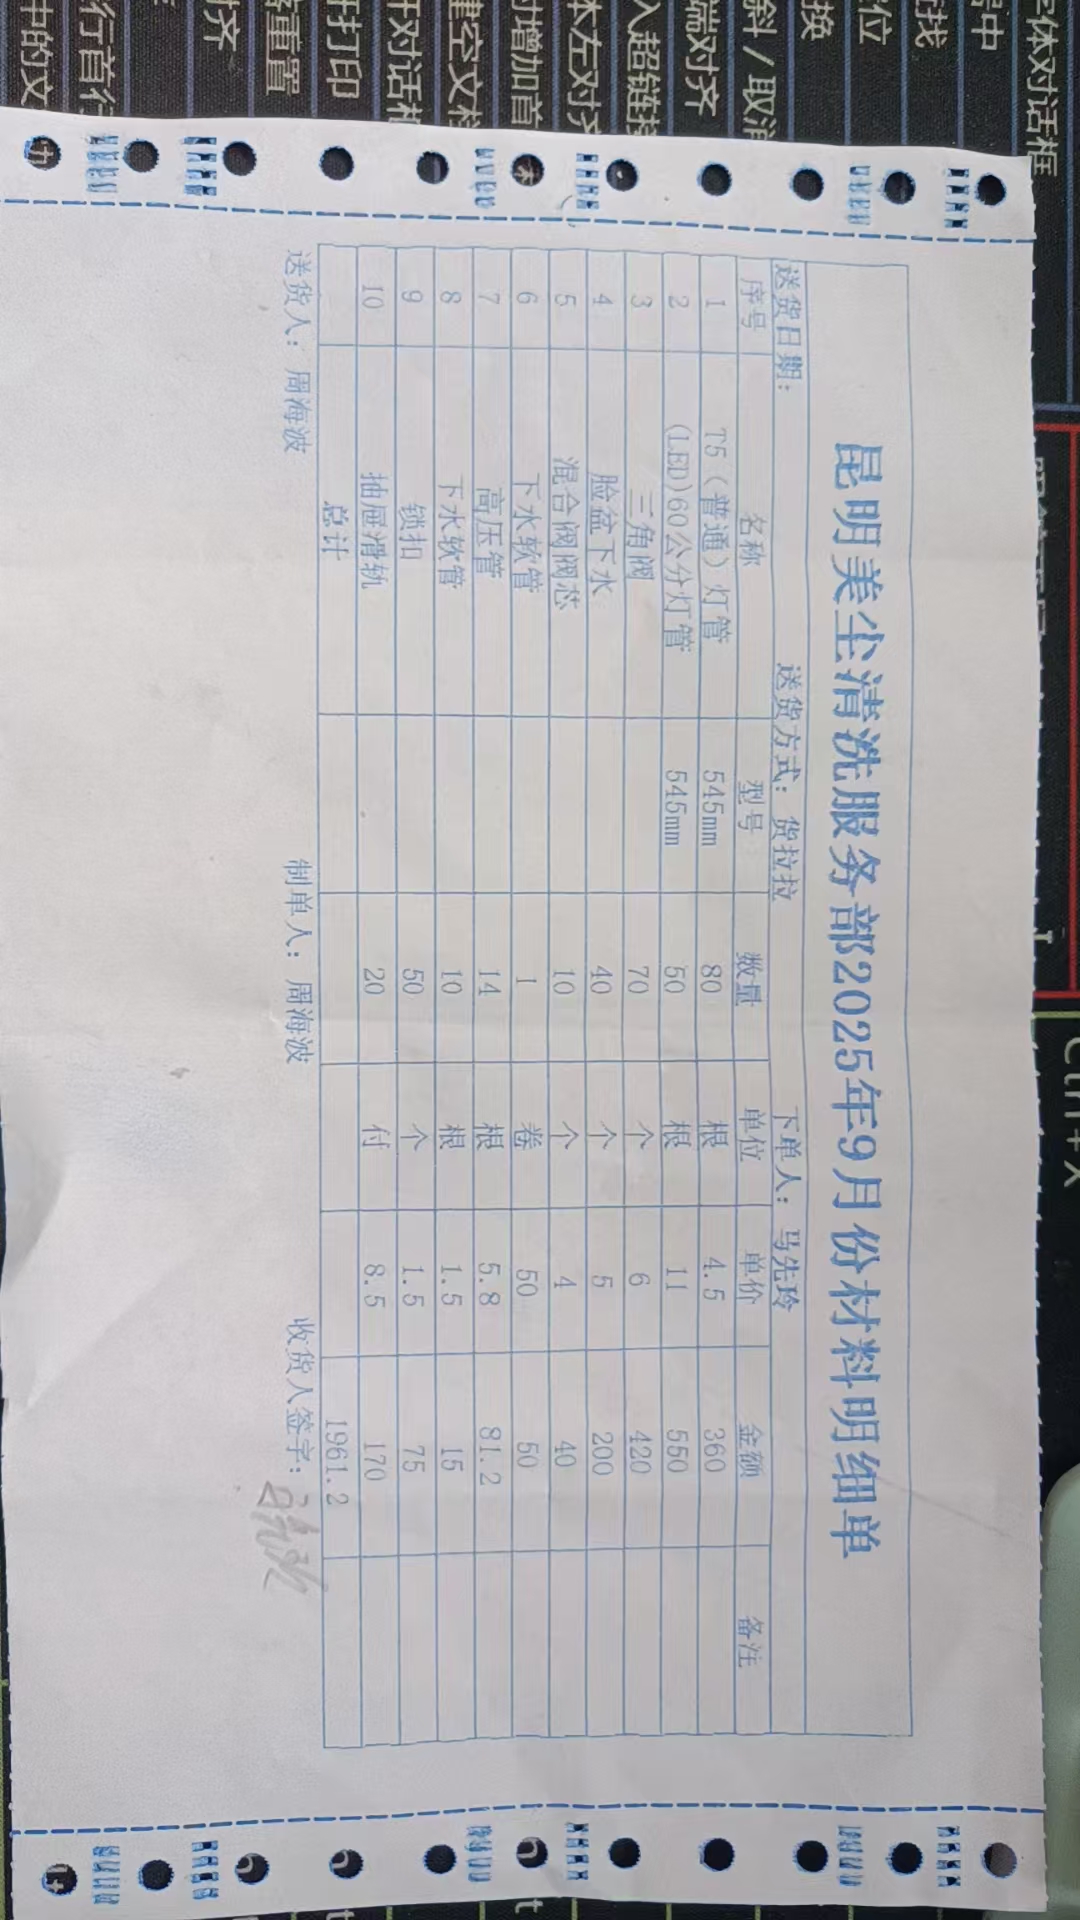 昆明美尘清洗服务部2025年9月份材料明细单
送货日期： 送货方式：货拉拉 下单人：马先玲
序号 名称 型号 数量 单位 单价 金额 备注
1 T5（普通）灯管 545mm 80 根 4.5 360
2 (LED)60公分灯管 545mm 50 根 11 550
3 三角阀 70 个 6 420
4 脸盆下水 40 个 5 200
5 混合阀阀芯 10 个 4 40
6 下水软管 1 卷 50 50
7 高压管 14 根 5.8 81.2
8 下水软管 10 根 1.5 15
9 锁扣 50 个 1.5 75
10 抽屉滑轨 20 付 8.5 170
总计 1961.2
送货人：周海波 制单人：周海波 收货人签字：
字体对话框
居中
查找
定位
替换
倾斜/取消
端对齐
入超链接
本左对齐
增加首
建空文档
开对话框
开打印
重置
对齐
行首行
中的文
Ctrl+X